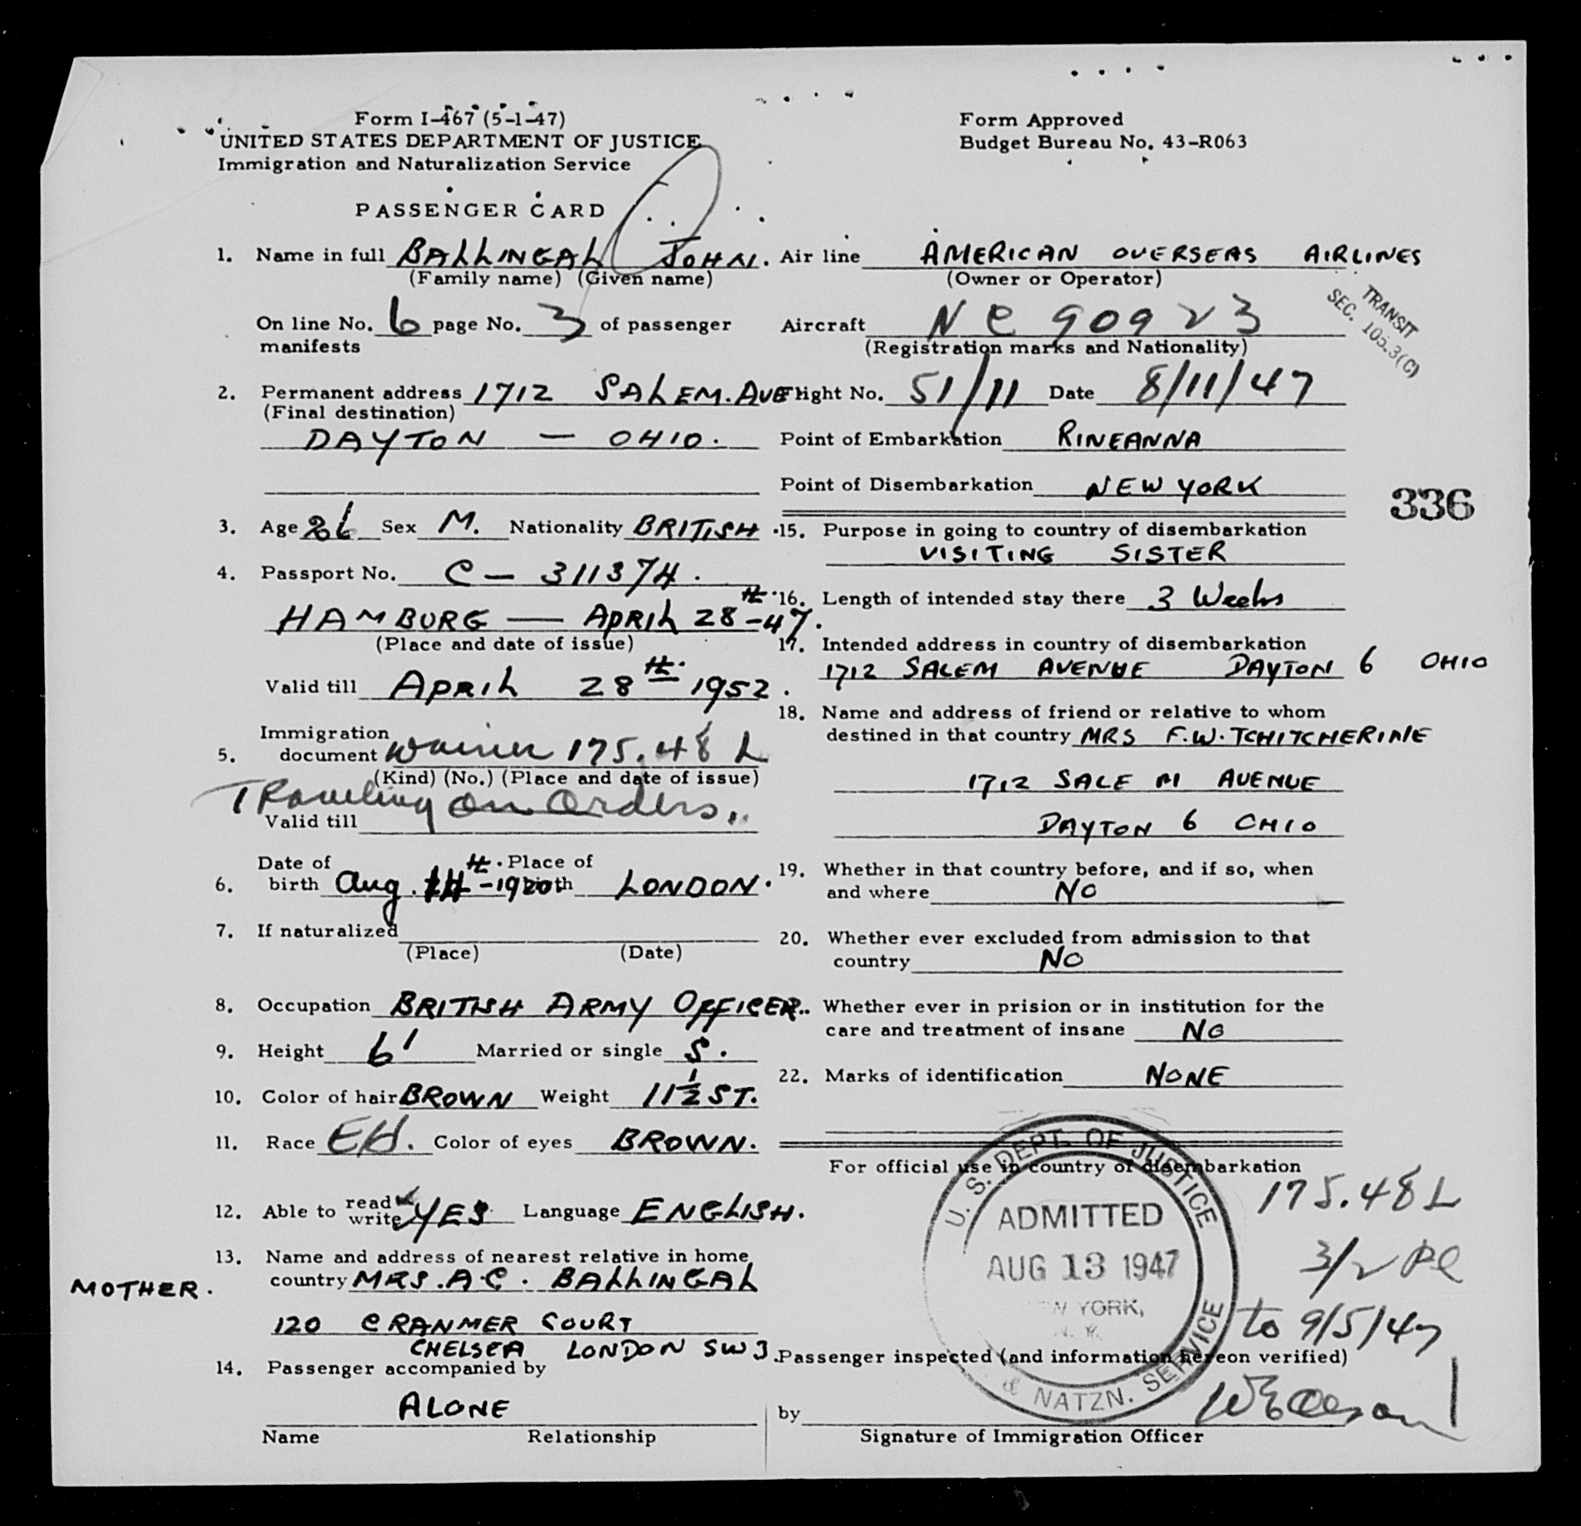 Form I-467 (5-1-47)
UNITED STATES DEPARTMENT OF JUSTICE
Immigration and Naturalization Service
Form Approved
Budget Bureau No. 43-R063
PASSENGER CARD
1. Name in full BALLINGAL JOHN.
(Family name) (Given name)
On line No. 6 page No. 3 of passenger
manifests
2. Permanent address 1712 SALEM. AVE
(Final destination)
DAYTON — OHIO.
3. Age 26 Sex M. Nationality BRITISH
4. Passport No. C — 311374.
HAMBURG — APRIL 28th-47.
(Place and date of issue)
Valid till APRIL 28th 1952.
Immigration
5. document Waiver 175.48 L
(Kind) (No.) (Place and date of issue)
Traveling on Orders.
Valid till
Date of Place of
6. birth Aug. 14th-1920 birth LONDON.
7. If naturalized
(Place) (Date)
8. Occupation BRITISH ARMY OFFICER.
9. Height 6' Married or single S.
10. Color of hair BROWN Weight 11½ ST.
11. Race EH. Color of eyes BROWN.
12. Able to read write YES Language ENGLISH.
13. Name and address of nearest relative in home
country MRS. A.C. BALLINGAL
MOTHER.
120 CRANMER COURT
CHELSEA LONDON SW3
14. Passenger accompanied by
ALONE
Name Relationship
Air line AMERICAN OVERSEAS AIRLINES
(Owner or Operator)
TRANSIT
SEC. 105.3(C)
Aircraft NC 90923
(Registration marks and Nationality)
Flight No. 51/11 Date 8/11/47
Point of Embarkation RINEANNA
Point of Disembarkation NEW YORK
336
15. Purpose in going to country of disembarkation
VISITING SISTER
16. Length of intended stay there 3 Weeks
17. Intended address in country of disembarkation
1712 SALEM AVENUE DAYTON 6 OHIO
18. Name and address of friend or relative to whom
destined in that country MRS F.W. TCHITCHERINE
1712 SALEM AVENUE
DAYTON 6 OHIO
19. Whether in that country before, and if so, when
and where NO
20. Whether ever excluded from admission to that
country NO
Whether ever in prision or in institution for the
care and treatment of insane NO
22. Marks of identification NONE
For official use in country of disembarkation
U. S. DEPT. OF JUSTICE
ADMITTED
AUG 13 1947
W YORK,
N. Y.
& NATZN. SERVICE
175.48 L
3/2
to 9/5/47
Passenger inspected (and information hereon verified)
by
Signature of Immigration Officer